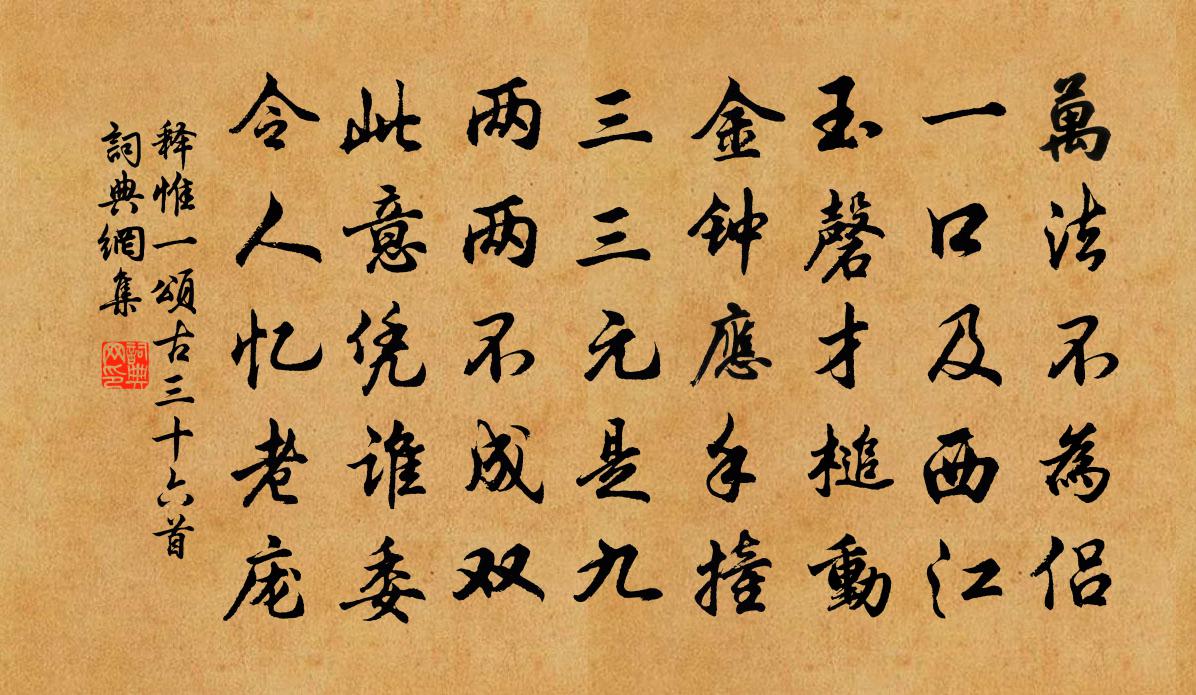 萬法不為侣
一口及西江
玉磬才槌動
金钟應手撞
三三元是九
两两不成双
此意凭谁委
令人忆老庞
释惟一颂古三十六首
詞典網集
詞典网印